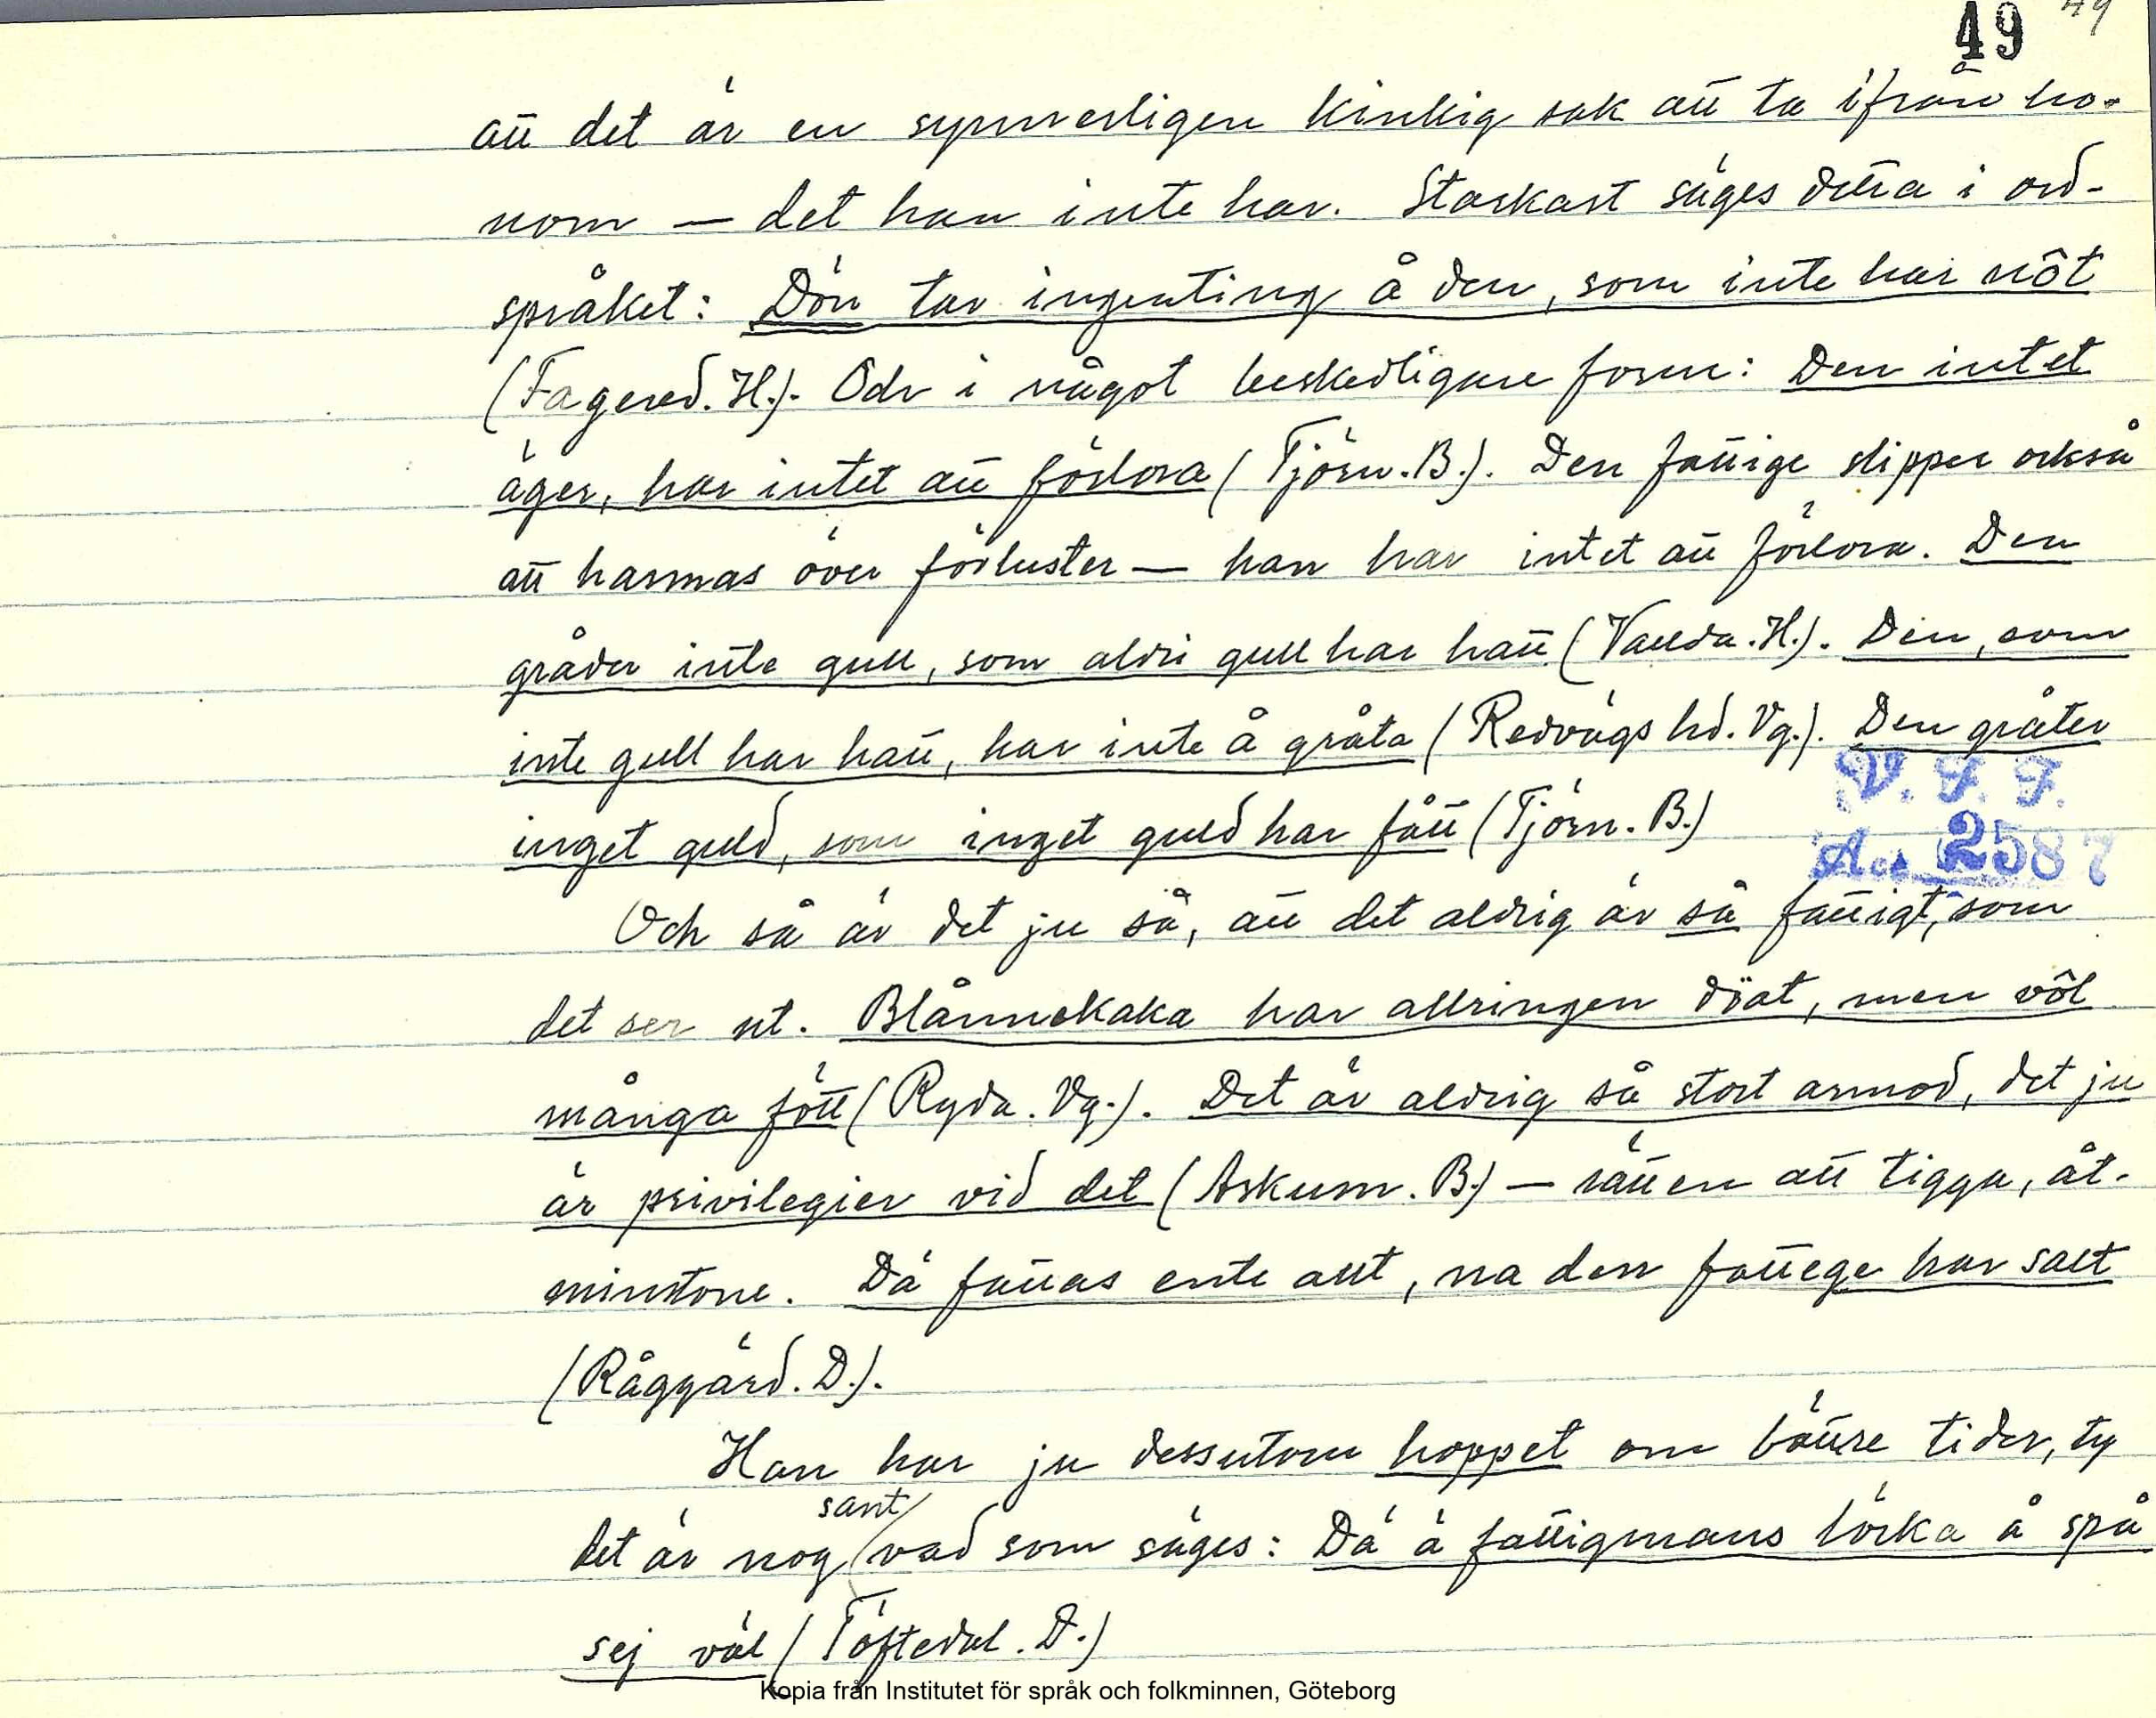 49 49
att det är en synnerligen kinkig sak att ta ifrån ho-
nom — det han inte har. Starkast säges detta i ord-
språket: Dön tar ingenting å den, som inte har nôt
(Fagered. H.). Och i något beskedligare form: Den intet
äger, har intet att förlora (Tjörn. B.). Den fattige slipper också
att harmas över förluster — han har intet att förlora. Den
gråder inte gull, som aldri gull har hatt (Vallda. H.). Den, som
inte gull har hatt, har inte å gråta (Redvägs hd. Vg.). Den gråter
inget guld, som inget guld har fått (Tjörn. B.)
V. F. F.
Acc. 2587
Och så är det ju så, att det aldrig är så fattigt, som
det ser ut. Blånnekaka har allringen döat, men vôl
många fött (Ryda. Vg.). Det är aldrig så stort armod, det ju
är privilegier vid det (Askum. B.) — rätten att tigga, åt-
minstone. Dä fattas ente allt, na den fattege har salt
(Råggärd. D.).
Han har ju dessutom hoppet om bättre tider, ty
det är nog sant vad som säges: Dä ä fattigmans lörka å spå
sej väl (Töftedal. D.)
Kopia från Institutet för språk och folkminnen, Göteborg